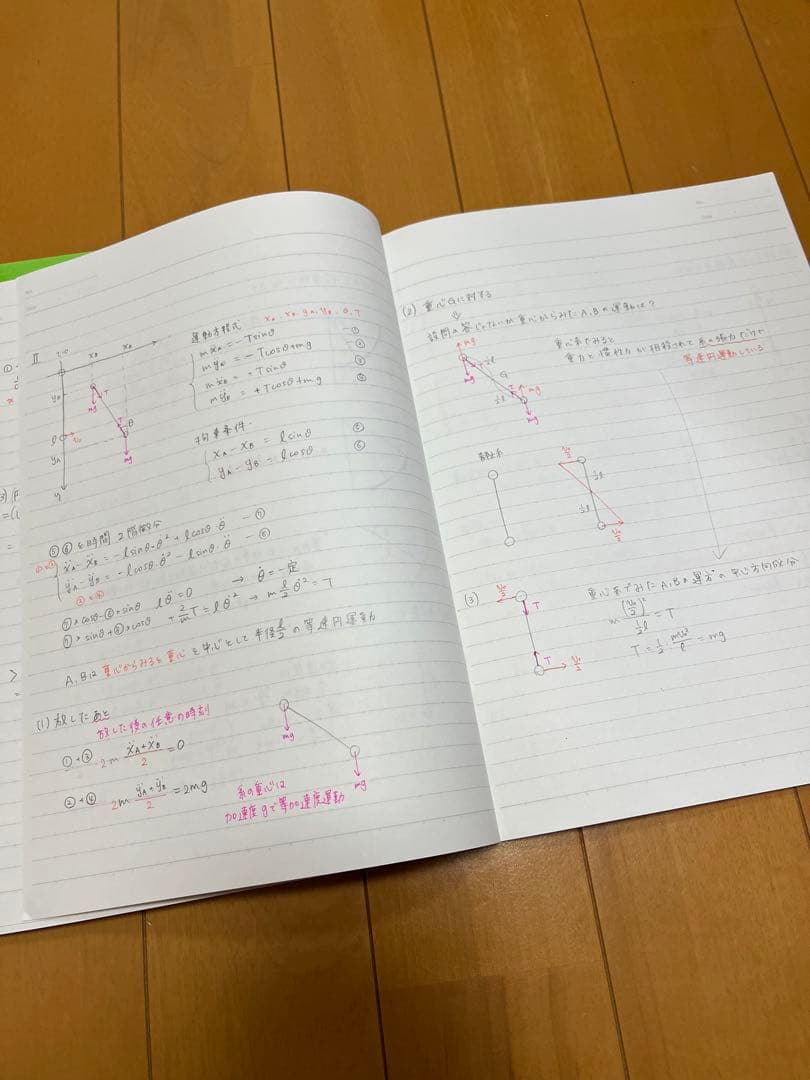 II
運動方程式 x_A, x_B, y_A, y_B, θ, T
mẍ_A = −T sinθ ―①
mÿ_A = −T cosθ + mg ―②
mẍ_B = T sinθ ―③
mÿ_B = +T cosθ + mg ―④
拘束条件
x_A − x_B = l sinθ ―⑤
y_A − y_B = l cosθ ―⑥
⑤⑥を時間2階微分
ẍ_A − ẍ_B = −l sinθ・θ̇² + l cosθ・θ̈ ―⑦
ÿ_A − ÿ_B = −l cosθ・θ̇² − l sinθ・θ̈ ―⑧
⑦×cosθ−⑧×sinθ lθ̈ = 0 → θ̇ = 一定
⑦×sinθ+⑧×cosθ + 2/m T = lθ̇² → m l/2 θ̇² = T
A,Bは重心からみると重心を中心として半径l/2の等速円運動
(1) 放したあと
放した後の任意の時刻
①+③ 2m (ẍ_A + ẍ_B)/2 = 0
②+④ 2m (ÿ_A + ÿ_B)/2 = 2mg
mg
mg
系の重心は
加速度gで等加速度運動
(2) 重心Gに対する
設問の答じゃないが重心からみたA,Bの運動は?
重心系でみると
重力と慣性力が相殺されて糸の張力だけで
等速円運動している
mg
½l
T
G
T
mg
½l
mg
mg
v₀/2
½l
½l
v₀/2
(3)
v₀/2
T
T
v₀/2
重心系でみたA,Bの運方の中心方向成分
m (v₀/2)²/(½l) = T
T = ½・mv₀²/l = mg